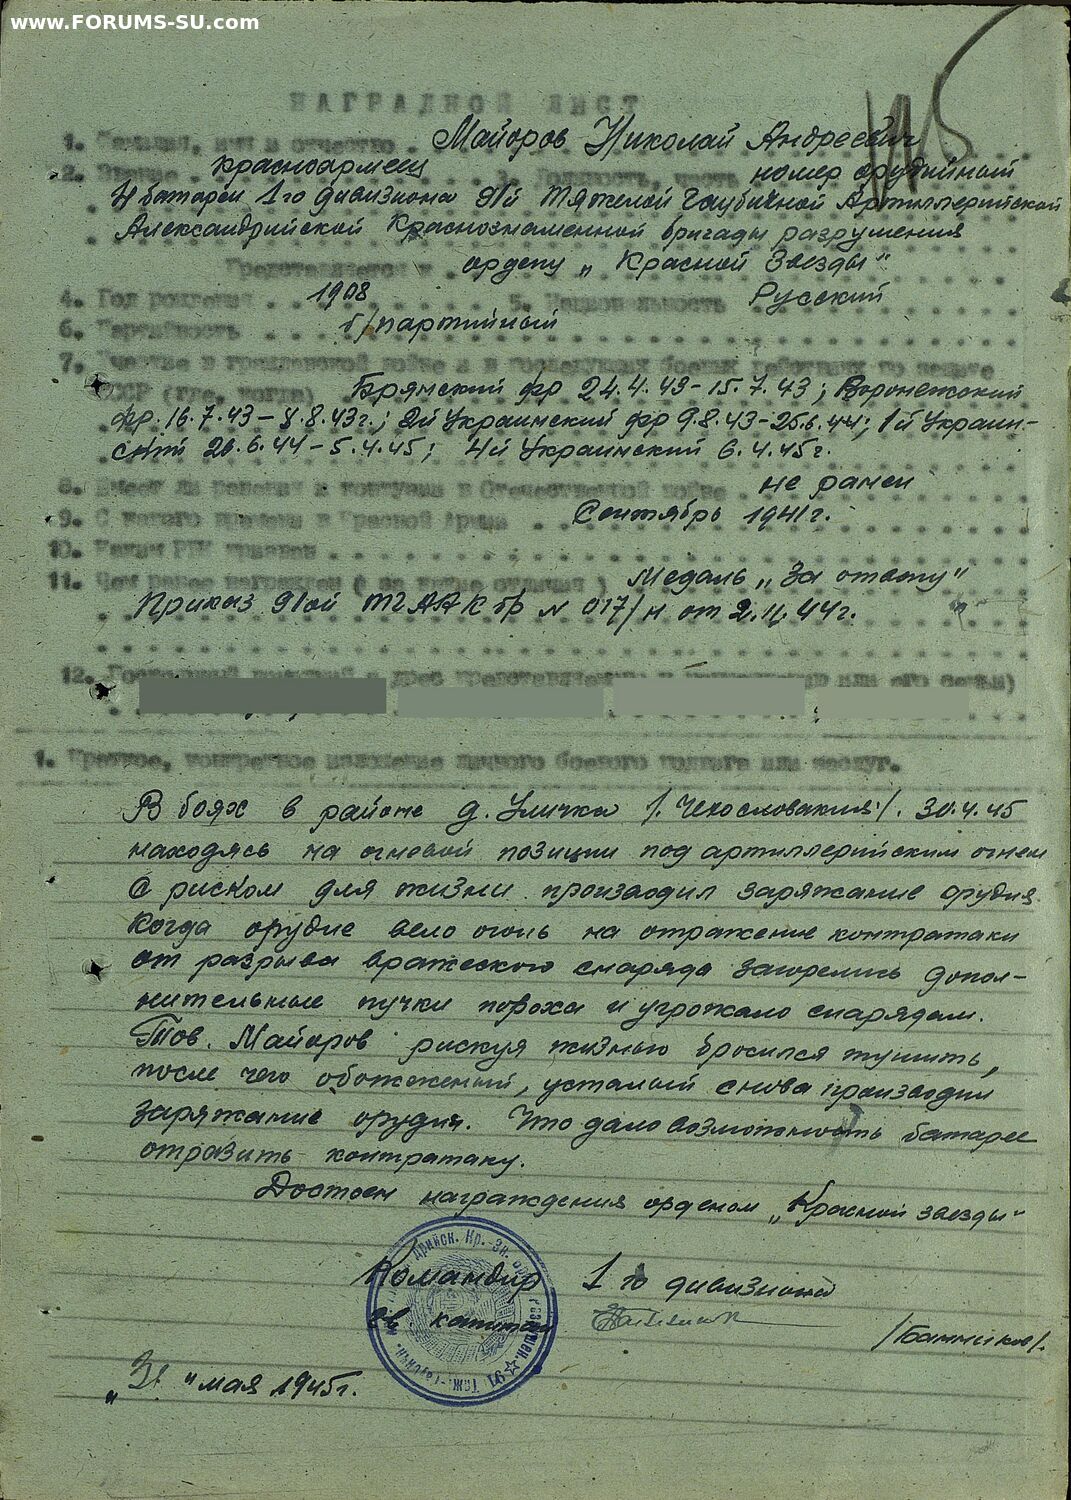 www.FORUMS-SU.com
НАГРАДНОЙ ЛИСТ
1. Фамилия, имя и отчество Майоров Николай Андреевич
2. Звание . Красноармеец 3. Должность, часть номер орудийный
4 батареи 1го дивизиона 91й Тяжелой Гаубичной Артиллерийской
Александрийской Краснознаменной бригады разрушения
Представляется к ордену „Красной Звезды"
4. Год рождения 1908 5. Национальность Русский
6. Партийность б/партийный
7. Участие в гражданской войне и в последующих боевых действиях по защите
СССР (где, когда) Брянский фр 24.4.43-15.7.43; Воронежский
фр. 16.7.43-8.8.43г.; 2й Украинский фр 9.8.43-25.6.44; 1й Украин-
26.6.44-5.4.45; 4й Украинский 6.4.45г.
8. Имеет ли ранения и контузии в Отечественной войне не ранен
9. С какого времени в Красной Армии Сентябрь 1941г.
10. Каким РВК призван
11. Чем ранее награжден ( за какие отличия ) Медаль „За отвагу"
Приказ 91ой ТГААКбр № 017/н от 2.11.44г.
12. Постоянный домашний адрес представляемого к награждению или его семьи)
1. Краткое, конкретное изложение личного боевого подвига или заслуг.
В боях в районе д. Уличка /Чехословакия/. 30.4.45
находясь на огневой позиции под артиллерийским огнем
с риском для жизни производил заряжание орудия.
Когда орудие вело огонь на отражение контратаки
от разрыва вражеского снаряда загорелись допол-
нительные пучки пороха и угрожало снарядам.
Тов. Майоров рискуя жизнью бросился тушить,
после чего обожженый, усталый снова производил
заряжание орудия. Что дало возможность батарее
отразить контратаку.
Достоен награждения орденом „Красной звезды"
Командир 1го дивизиона
гв. капитан /Банников/.
мая 1945г.